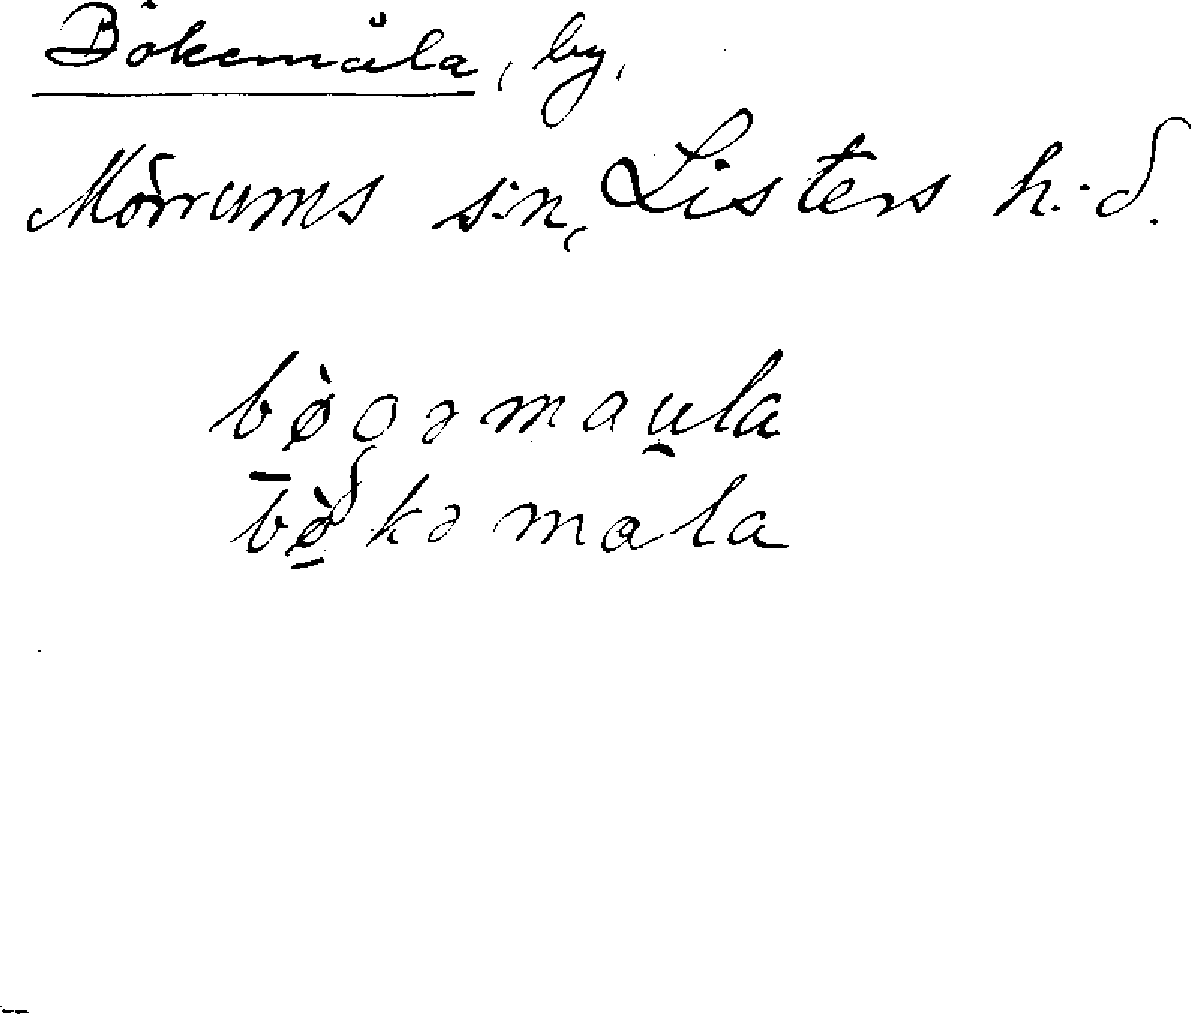 Bökemåla, by,
Mörrums s:n, Listers h:d.
bø̀gəmau̯la
bø̀kəmala